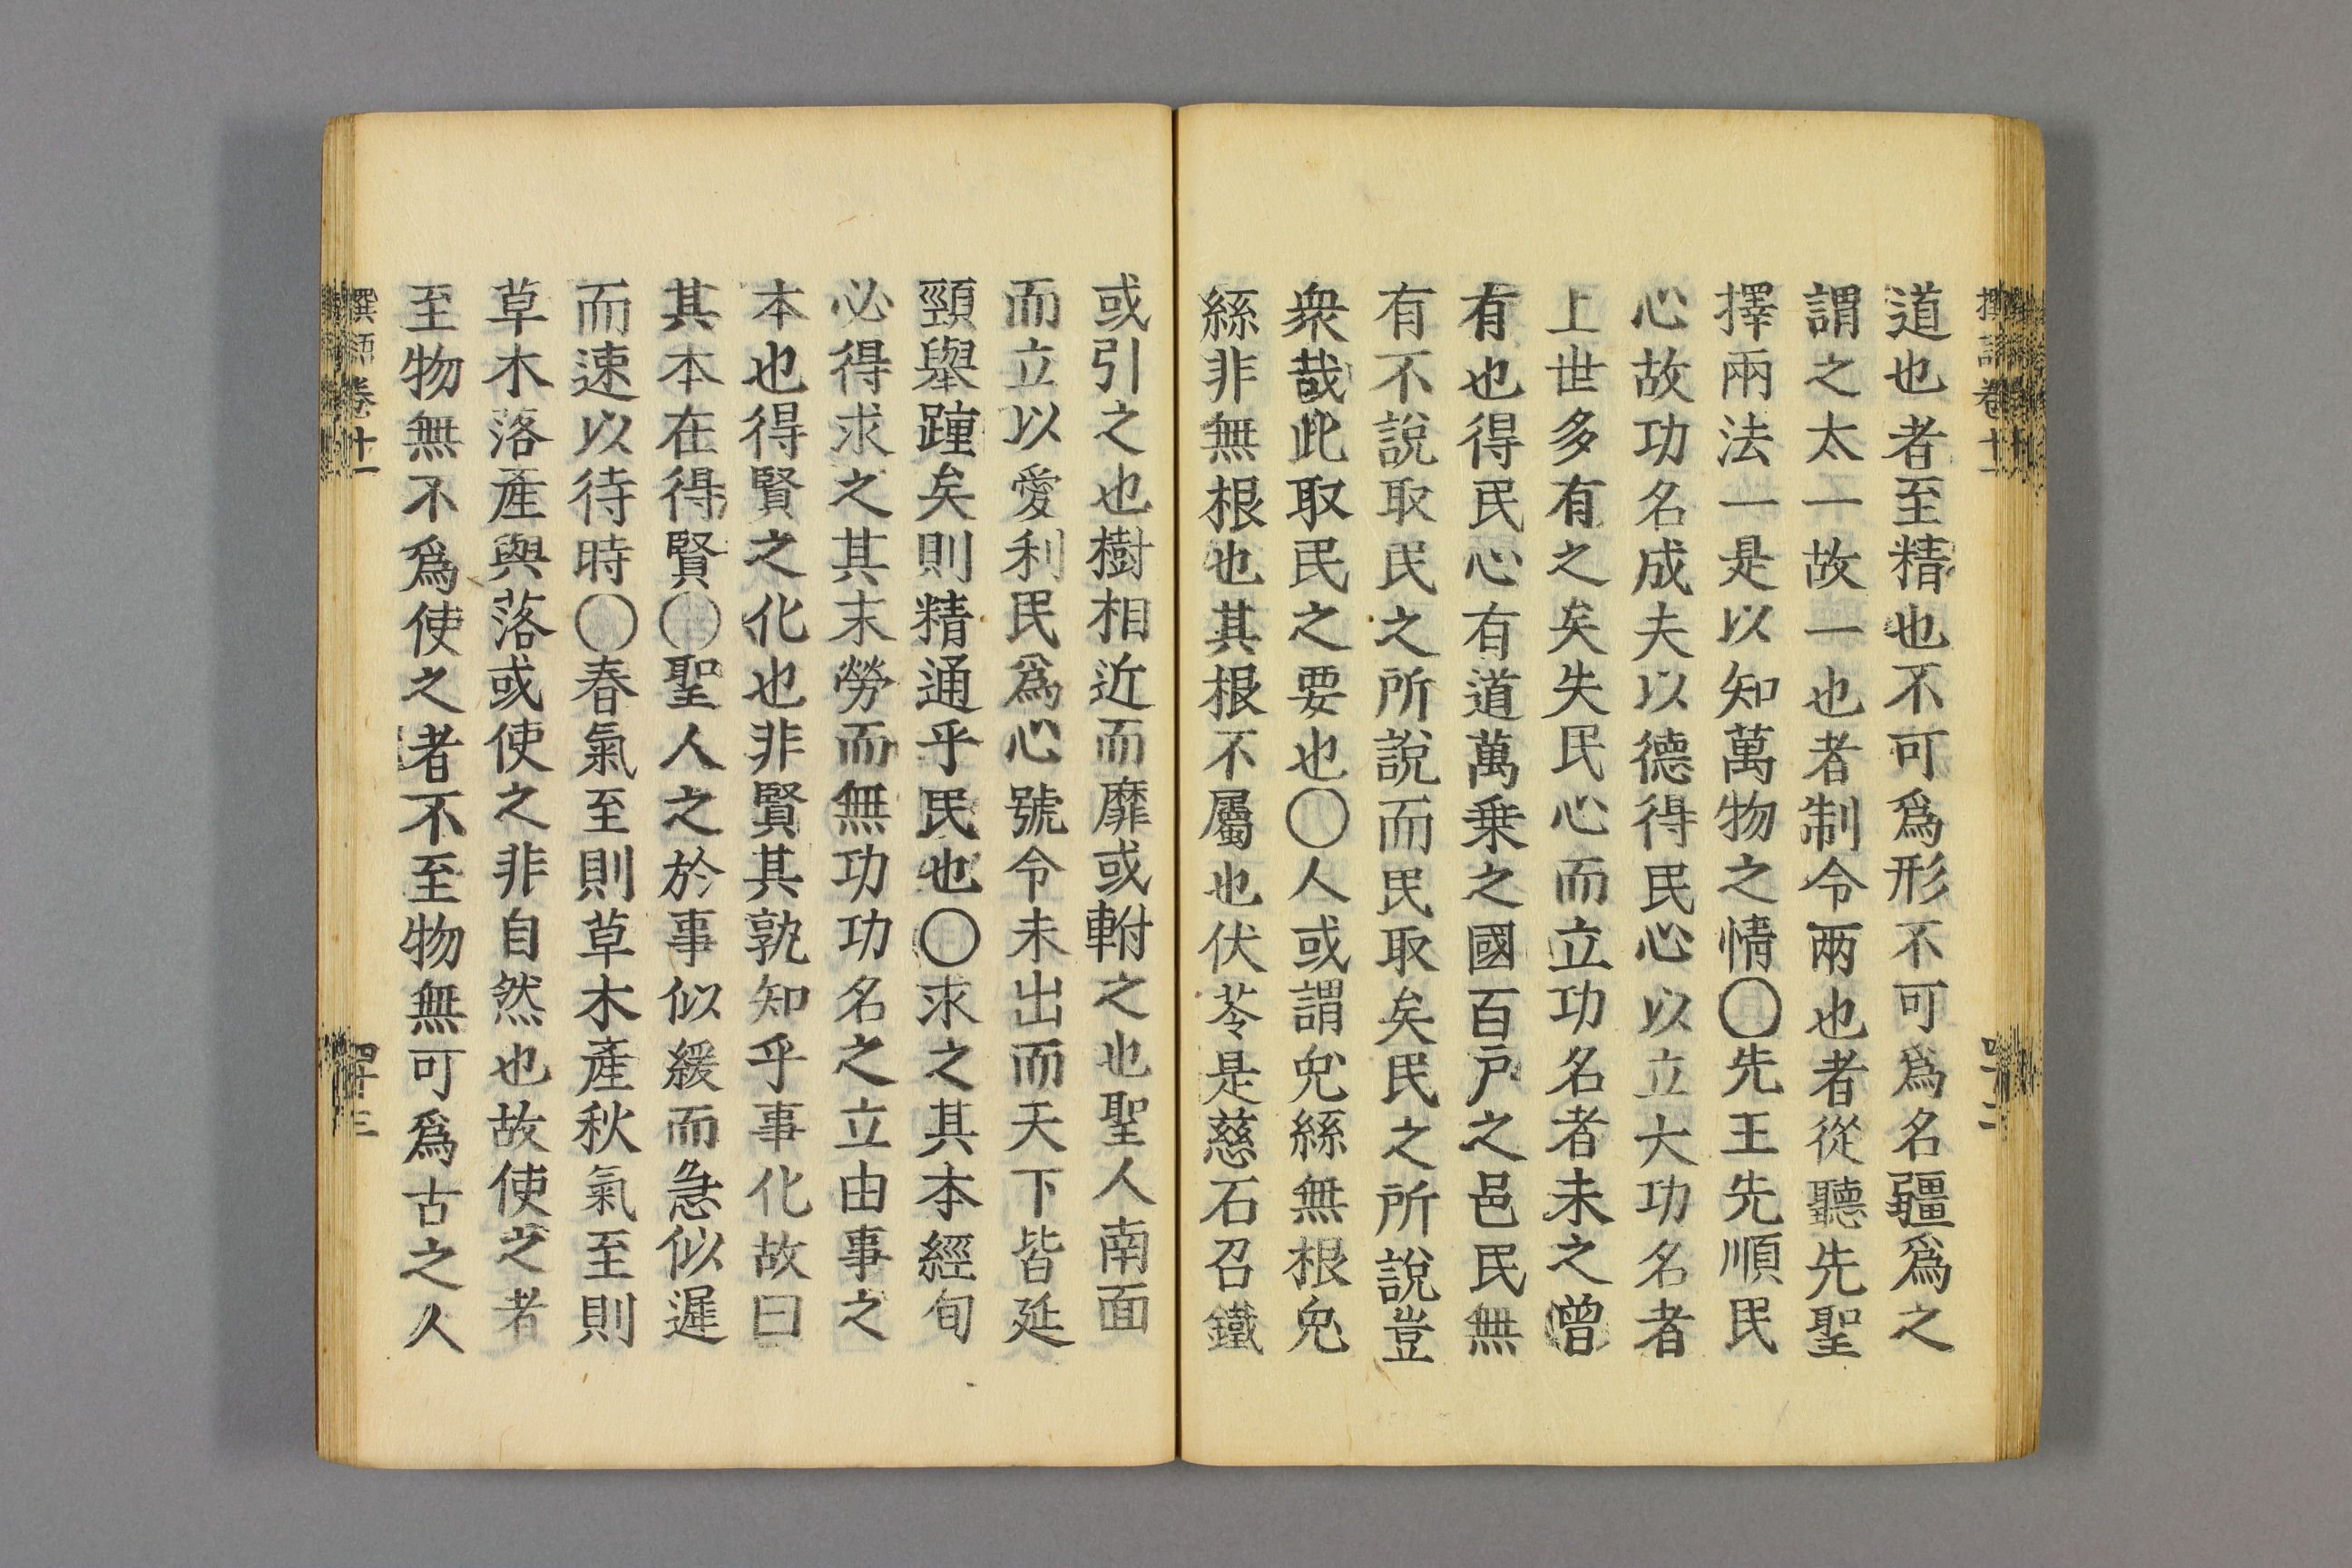 道也者至精也不可爲形不可爲名彊爲之
謂之太一故一也者制令兩也者從聽先聖
擇兩法一是以知萬物之情〇先王先順民
心故功名成夫以德得民心以立大功名者
上世多有之矣失民心而立功名者未之曾
有也得民心有道萬乗之國百戶之邑民無
有不說取民之所說而民取矣民之所說豈
衆哉此取民之要也〇人或謂兔絲無根兔
絲非無根也其根不屬也伏苓是慈石召鐵
或引之也樹相近而靡或軵之也聖人南面
而立以愛利民爲心號令未出而天下皆延
頸舉踵矣則精通乎民也〇求之其本經旬
必得求之其末勞而無功功名之立由事之
本也得賢之化也非賢其孰知乎事化故曰
其本在得賢〇聖人之於事似緩而急似遲
而速以待時〇春氣至則草木產秋氣至則
草木落產與落或使之非自然也故使之者
至物無不爲使之者不至物無可爲古之人
卷十一